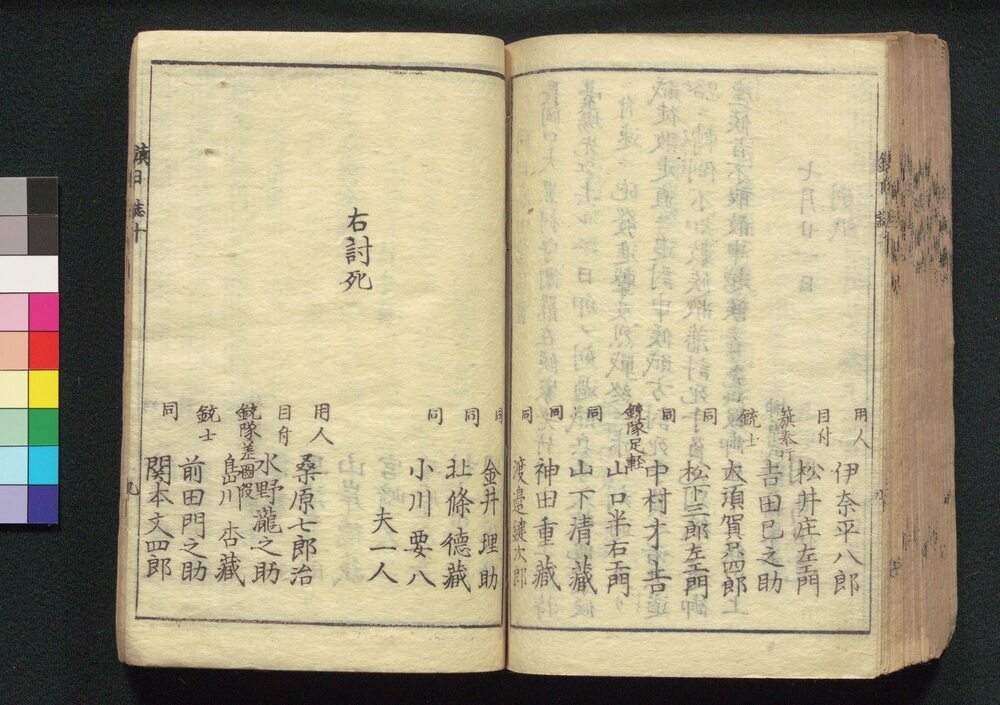 用人 伊奈平八郎
目付 松井庄左エ門
旗奉行 吉田巳之助
銃士 大須賀又四郎
同 松下三郎左エ門
同 中村才吉
銃隊足軽 山口半右エ門
同 山下清藏
同 神田重藏
同 渡邉鍵次郎
同 金井理助
同 北條德藏
同 小川要八
夫一人
右討死
用人 桑原七郎治
目付 水野瀧之助
銃隊差圖役 島川杏藏
銃士 前田門之助
同 関本文四郎
日誌十
九